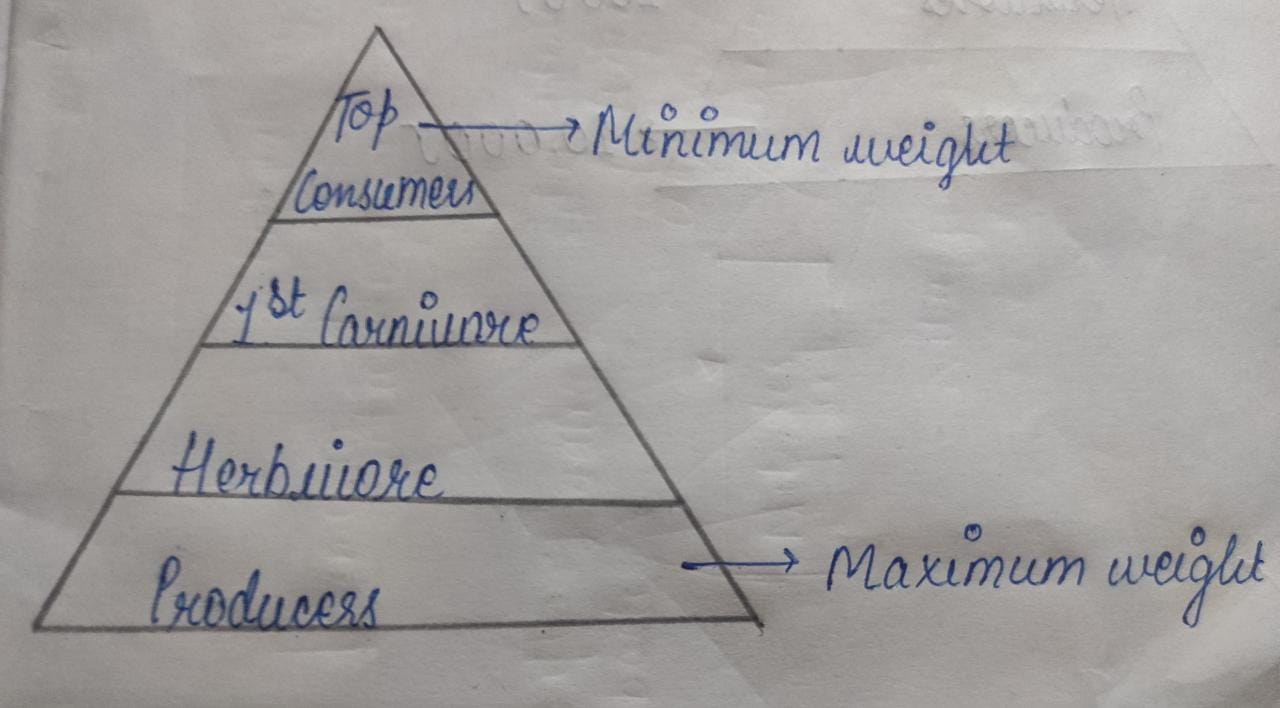 Top
Consumers
Minimum weight
1st Carnivore
Herbivore
Producers
Maximum weight